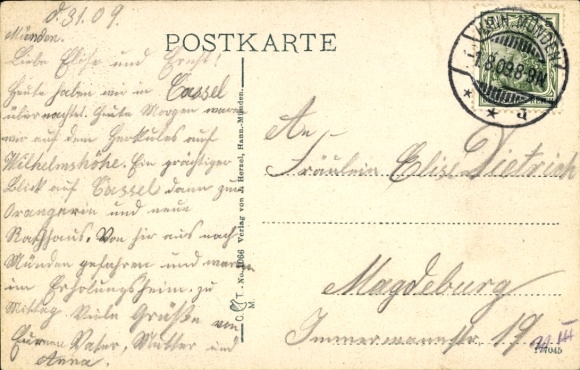 d. 31. 09.
Münden.
Liebe und Ernst!
Heute haben wir in Cassel
übernachtet. Heute Morgen waren
wir auf dem Herkules auf
Wilhelmshöhe. Ein prachtiger
Blick auf Cassel dann zur
Orangerin und neue
Rathhaus. Von hir aus nach
Münden gefahren und waren
im Erholungsheim. zu
Mittag. Viele Grüße von
Eurem Vater, Mutter und
Anna.
POSTKARTE
C. T. M. No. 1066 Verlag von J. Herzel, Hann.-Münden.
HANN. MÜNDEN
1.8.09.8-9N
* * a
5
An
Fräulein Elise Dietrich
Magdeburg
Immermannstr. 19
III
177045